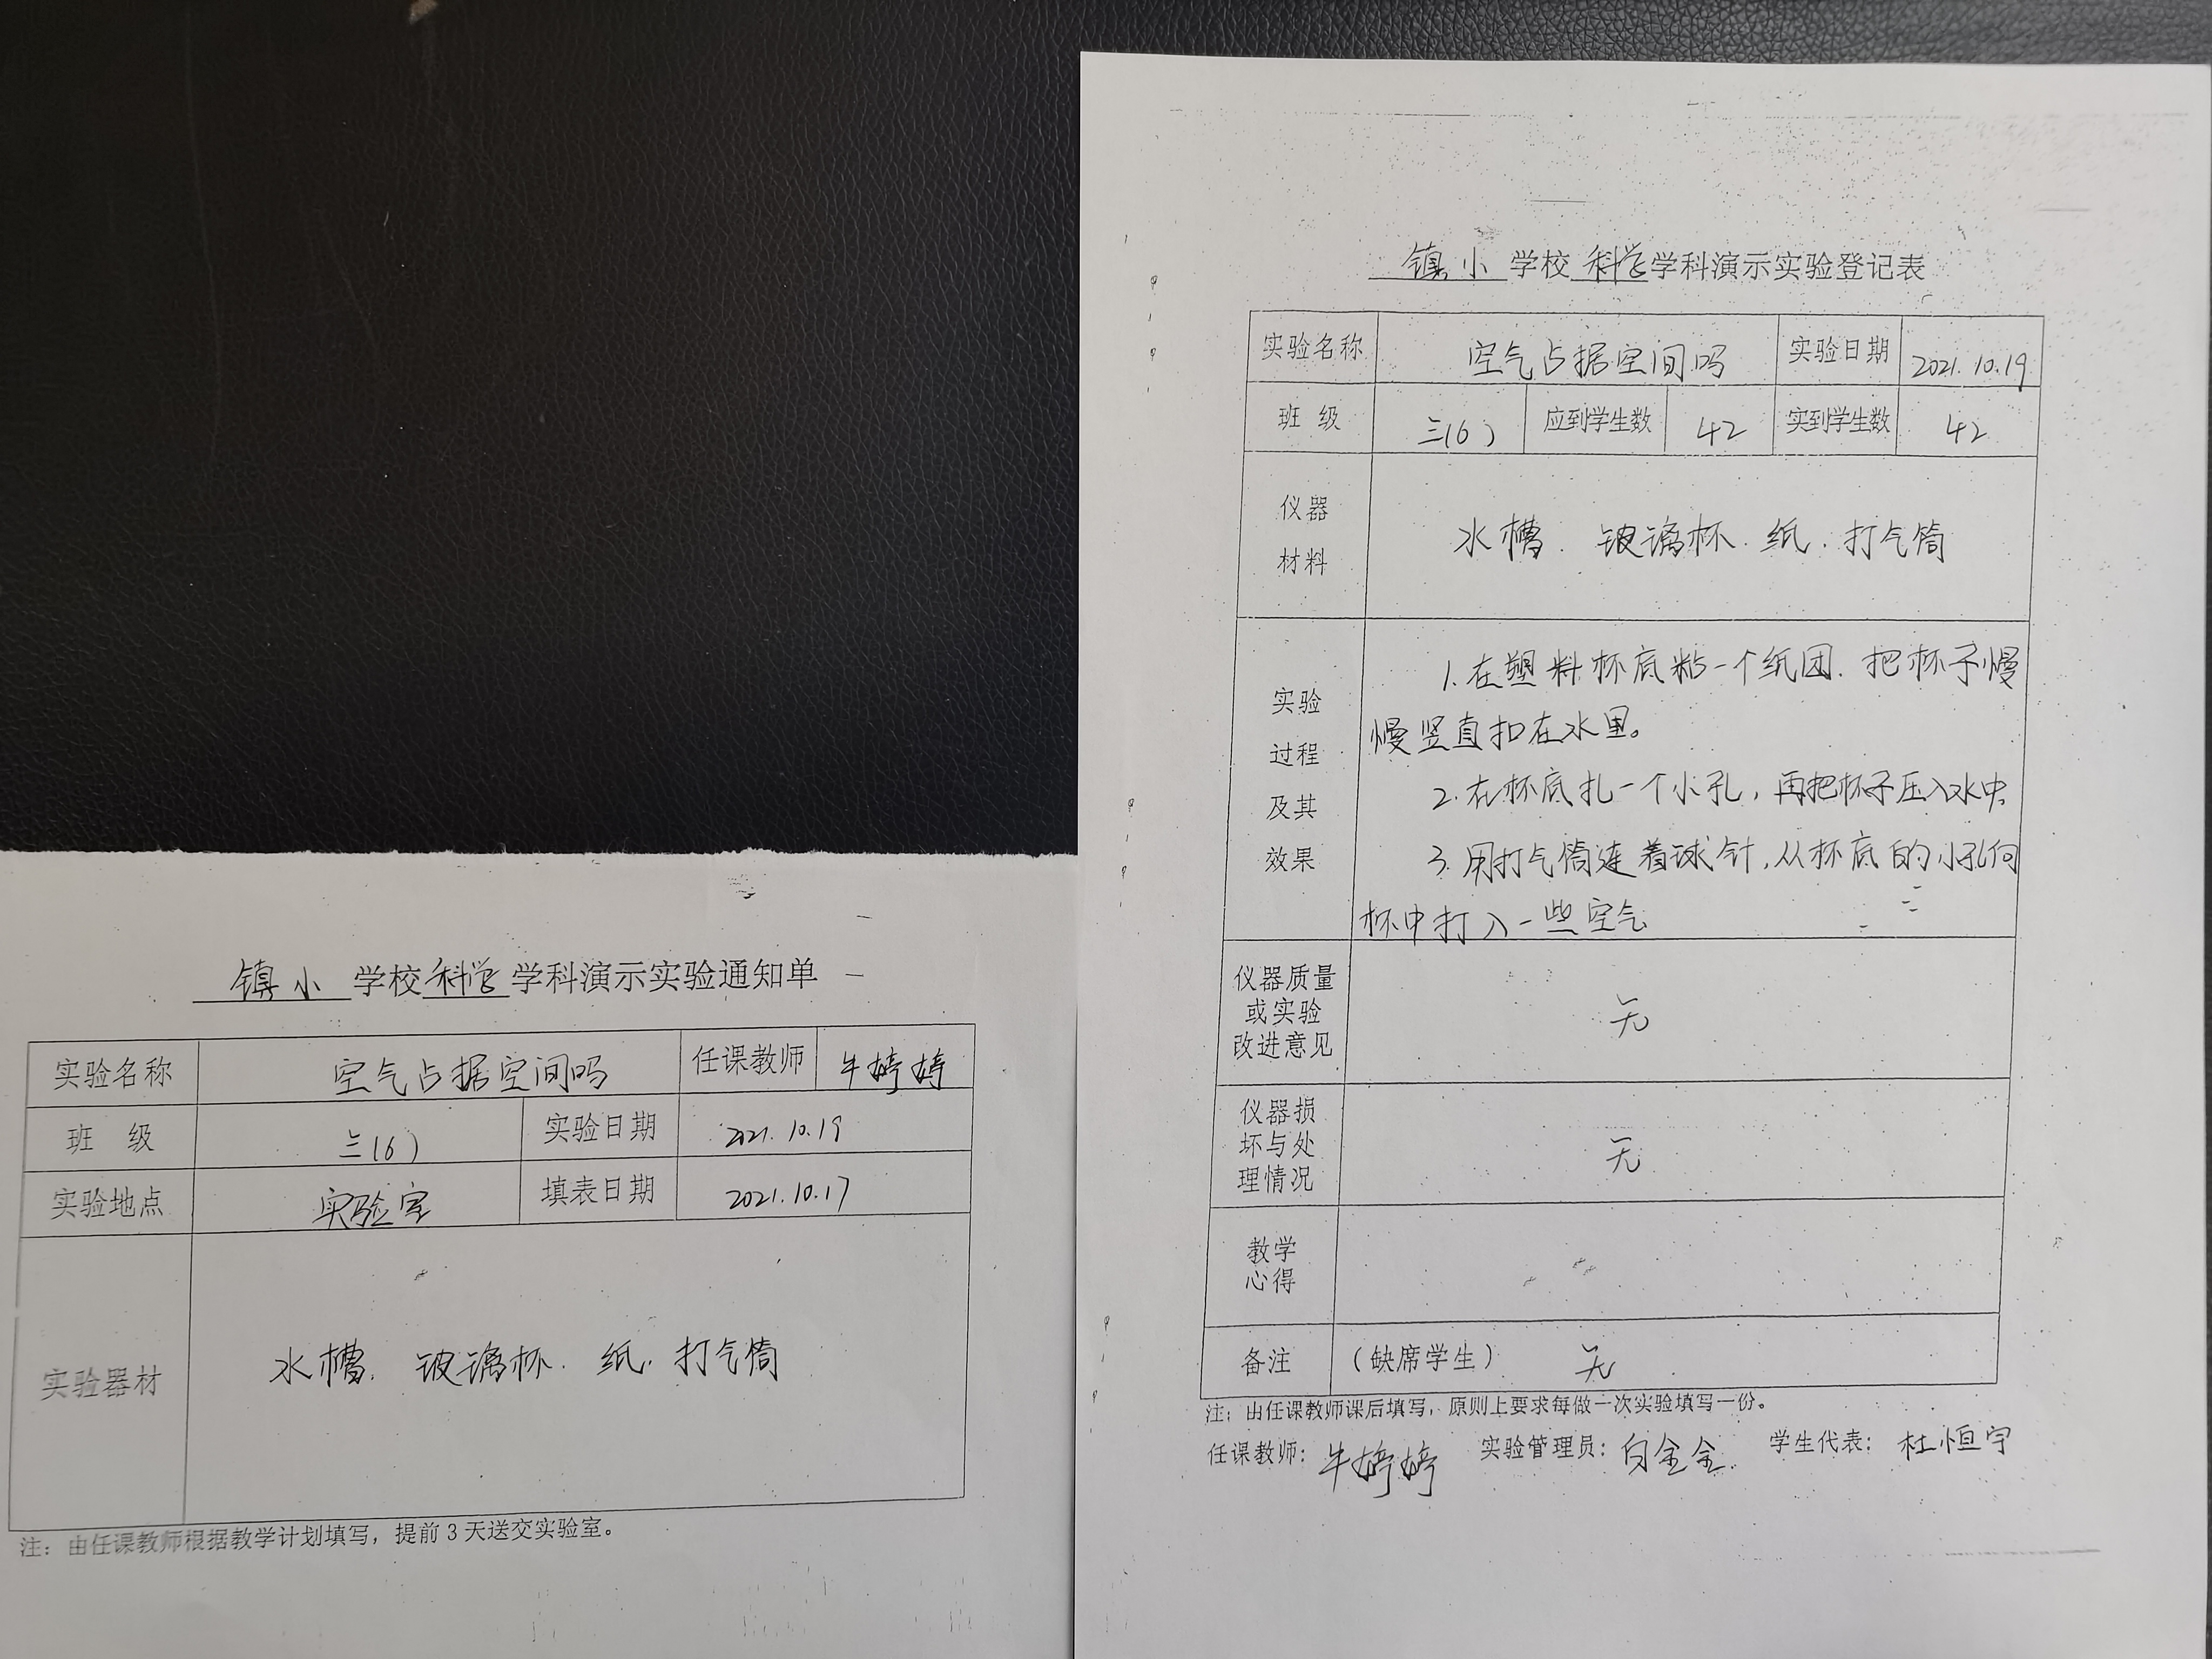 镇小 学校 科学 学科演示实验通知单
实验名称 空气占据空间吗 任课教师 牛婷婷
班 级 三(6) 实验日期 2021.10.19
实验地点 实验室 填表日期 2021.10.17
实验器材 水槽. 玻璃杯. 纸. 打气筒
注：由任课教师根据教学计划填写，提前3天送交实验室。
镇小 学校 科学 学科演示实验登记表
实验名称 空气占据空间吗 实验日期 2021.10.19
班 级 三(6) 应到学生数 42 实到学生数 42
仪器
材料
水槽. 玻璃杯. 纸. 打气筒
实验
过程
及其
效果
1.在塑料杯底粘一个纸团.把杯子慢
慢竖直扣在水里。
2.在杯底扎一个小孔，再把杯子压入水中.
3.用打气筒连着球针,从杯底的小孔向
杯中打入一些空气
仪器质量
或实验
改进意见
无
仪器损
坏与处
理情况
无
教学
心得
备注 （缺席学生） 无
注：由任课教师课后填写，原则上要求每做一次实验填写一份。
任课教师：牛婷婷 实验管理员：白金金. 学生代表：杜恒宇